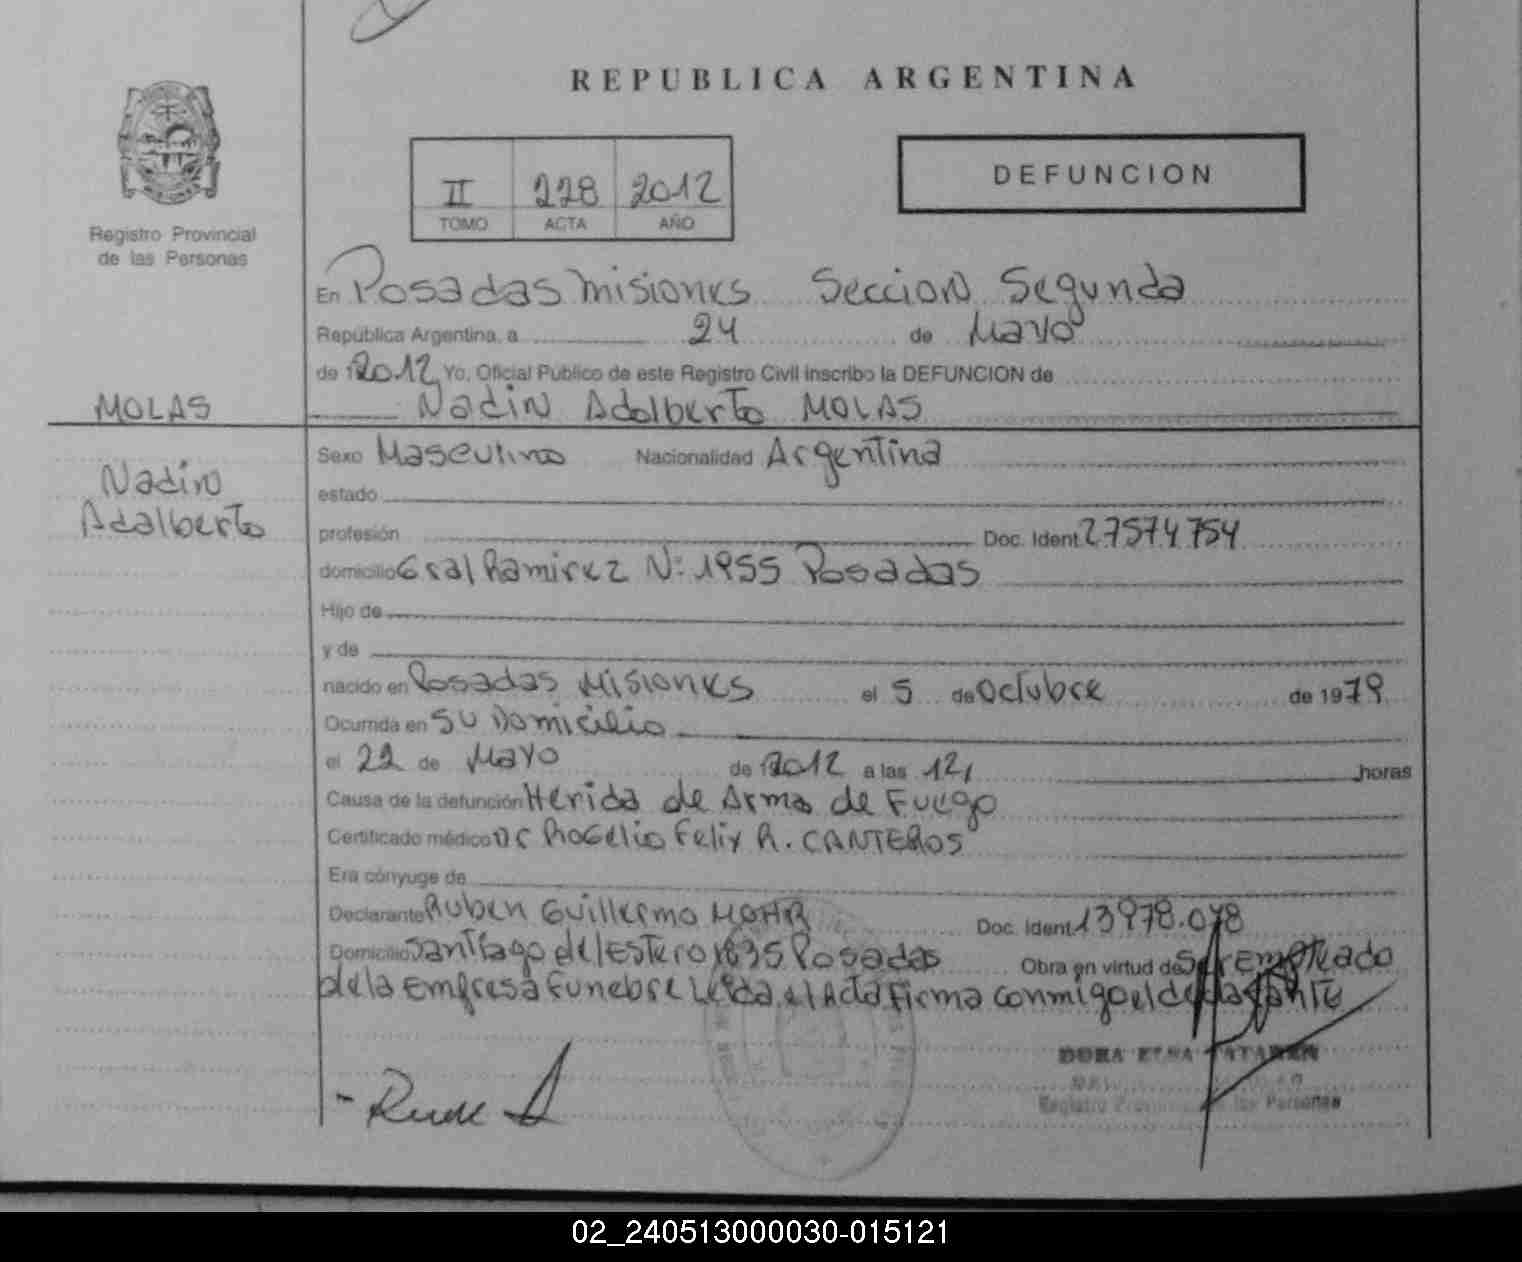 REPUBLICA ARGENTINA
Registro Provincial
de las Personas
II 228 2012
TOMO ACTA AÑO
DEFUNCION
En Posadas Misiones Seccion Segunda
República Argentina, a 24 de Mayo
de 12012 Yo, Oficial Público de este Registro Civil inscribo la DEFUNCION de
MOLAS
Nadin Adalberto MOLAS
Nadin
Adalberto
Sexo Masculino Nacionalidad Argentina
estado
profesión Doc. Ident. 27574754
domicilio Gral Ramirez N: 1955 Posadas
Hijo de
y de
nacido en Posadas Misiones el 5 de Octubre de 1979
Ocurrida en Su Domicilio
el 22 de Mayo de 12012 a las 12, horas
Causa de la defunción Herida de Arma de Fuego
Certificado médico Dr Rogelio Felix R. CANTEROS
Era cónyuge de
Declarante Ruben Guillermo MOHR Doc. Ident. 13978.078
Domicilio Santiago del Estero 1835 Posadas Obra en virtud de Ser Empleado
de la Empresa Funebre Leida el Acta Firma conmigo el declarante
DORA ELSA
Registro Provincial de las Personas
02_240513000030-015121